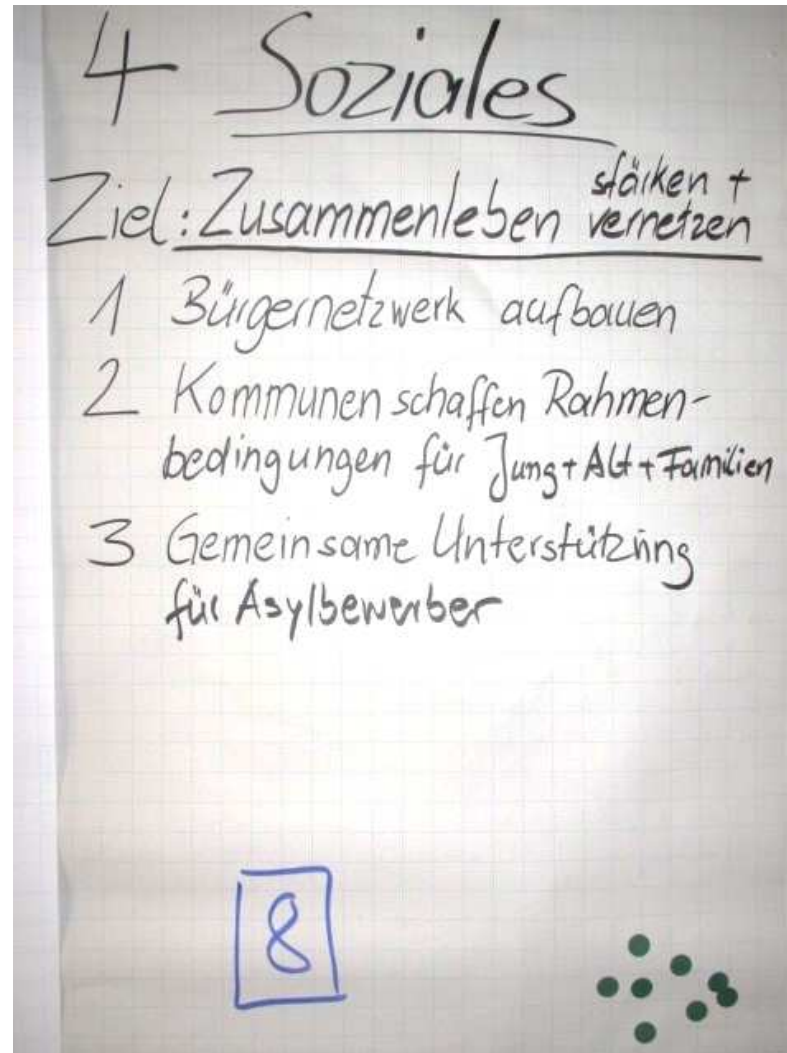 4 Soziales
Ziel: Zusammenleben stärken +
vernetzen
1 Bürgernetzwerk aufbauen
2 Kommunen schaffen Rahmen-
bedingungen für Jung + Alt + Familien
3 Gemeinsame Unterstützung
für Asylbewerber
8